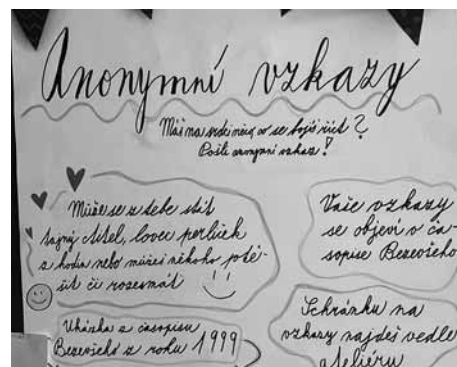 Anonymní vzkazy
Máš na srdci něco, co se bojíš říct?
Pošli anonymní vzkaz!
Může se z tebe stát
tajný ctitel, lovec perliček
z hodin nebo můžeš někoho potě-
šit či rozesmát
Vaše vzkazy
se objeví v ča-
sopise Bezevšeho
Ukázka z časopisu
Bezevšeho z roku 1999
Schránku na
vzkazy najdeš vedle
ateliéru